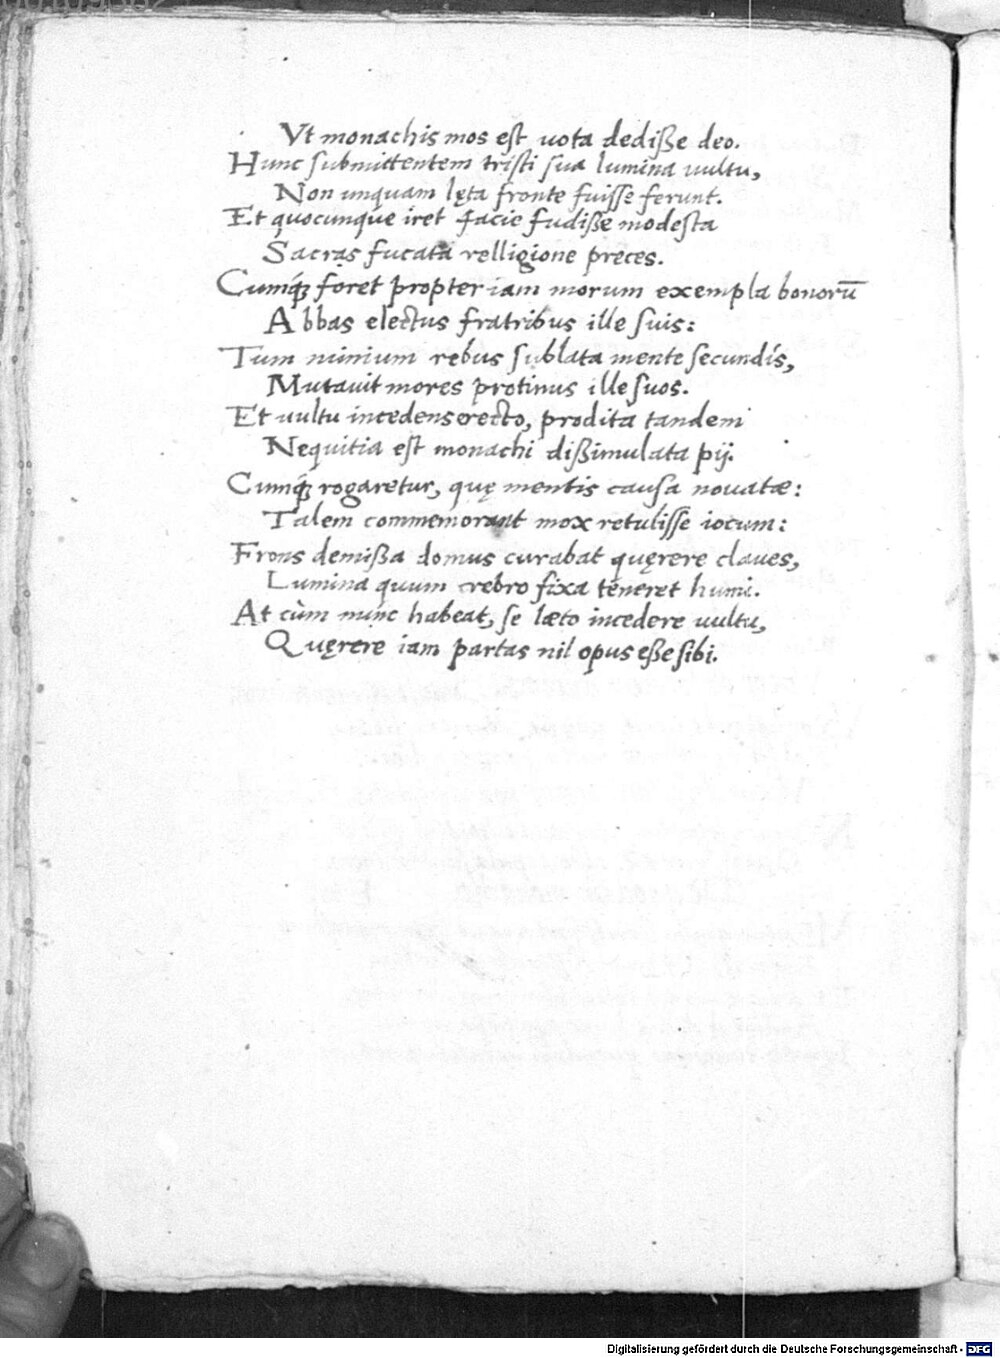 Vt monachis mos est uota dediße deo.
Hunc submittentem tristi sua lumina uultu,
Non unquam lęta fronte fuisse ferunt.
Et quocunque iret facie fudiße modesta
Sacras fucata relligione preces.
Cumq́ꝫ foret propter iam morum exempla bonorū
Abbas electus fratribus ille suis:
Tum nimium rebus sublata mente secundis,
Mutauit mores protinus ille suos.
Et uultu incedens erecto, prodita tandem
Nequitia est monachi dißimulata pij.
Cumq́ꝫ rogaretur, quę mentis causa nouatæ:
Talem commemorant mox retulisse iocum:
Frons demißa domus curabat quęrere claues,
Lumina quum crebro fixa teneret humi.
At cùm nunc habeat, se læto incedere uultu,
Quęrere iam partas nil opus eße sibi.
Digitalisierung gefördert durch die Deutsche Forschungsgemeinschaft - DFG